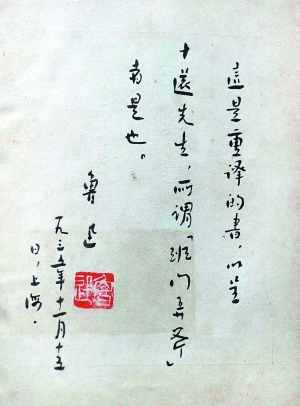 這是重译的書，以呈
十還先生，所謂「班门弄斧」
者是也。
魯迅
一九三五年十一月十五
日，上海．